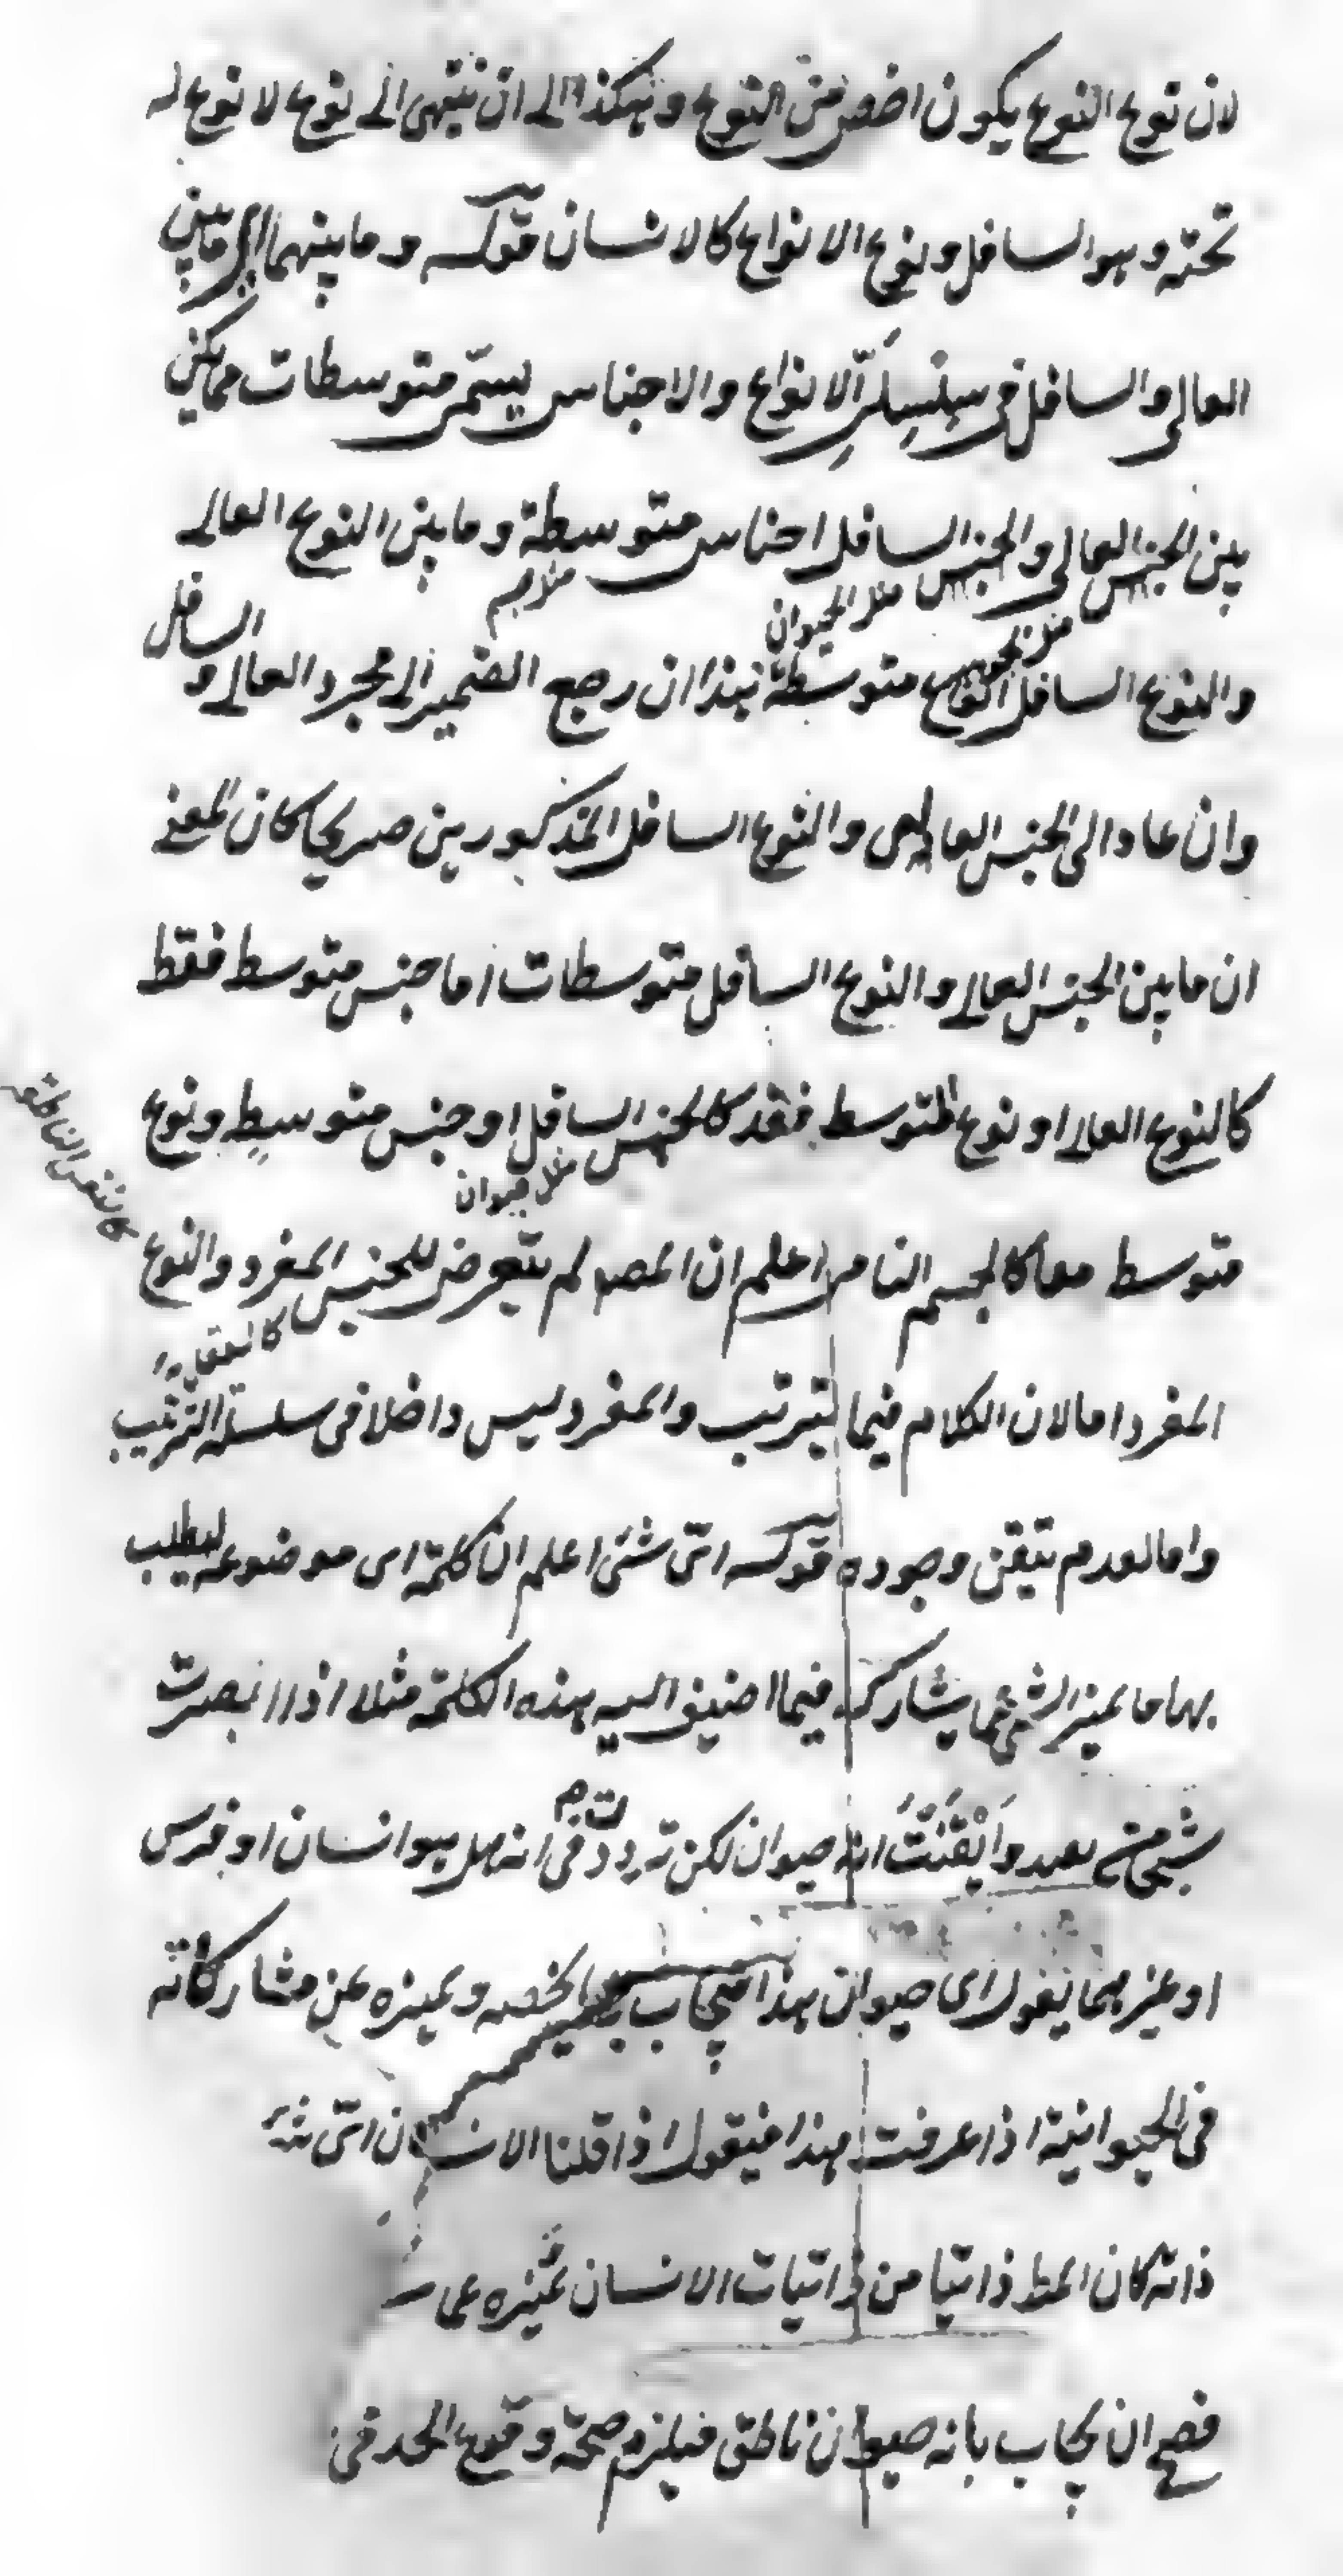 لان نوع النوع يكون اخص من النوع وهكذا الى ان ينتهى الى نوع لا نوع له
تحته وهو السافل ونوع الانواع كالانسان قوله وما بينهما اى ما بين
العالى والسافل فى سِلْسِلَةِ الانواع والاجناس يسمّى متوسطات فما بين
بين الجنس العالى والجنس السافل اجناس متوسطة وما بين النوع العالى
مثل الحيوان
والنوع السافل انواع متوسطة هذا ان رجع الضمير الى مجرد العالى و
السافل
وان عاد الى الجنس العالى والنوع السافل المذكورين صريحا كان المعنى
ان ما بين الجنس العالى والنوع السافل متوسطات اما جنس متوسط فقط
كالنوع العالى او نوع متوسط فقط كالجنس السافل او جنس متوسط ونوع
مثل حيوان
متوسط معا كالجسم النامى اعلم ان المصـ لم يتعرض للجنس المفرد والنوع
كالنفس الناطقة
المفرد اما لان الكلام فيما يترتب والمفرد ليس داخلا فى سلسلة الترتيب
واما لعدم تيقن وجوده قوله اىّ شئ اعلم ان كلمة اى موضوعه ليطلب
بها ما يميز الشئ عما يشاركه فيما اضيف اليه هذه الكلمة مثلا اذا ابصرت
شئ من بعيد وَاَيْقَنْتَ انه حيوان لكن ترددت فى انه هل هو انسان او فرس
او غيرهما يقول اى حيوان هذا فيجاب بما يخصه ويميزه عن مشاركاته
فى الحيوانية اذا عرفت هذا فيقول اذا قلنا الانسان اىّ شئ
ذاته كان المط ذاتيا من ذاتيات الانسان يميزه عما
فصح ان يجاب بانه حيوان ناطق فيلزم صحة وقوع الحد فى